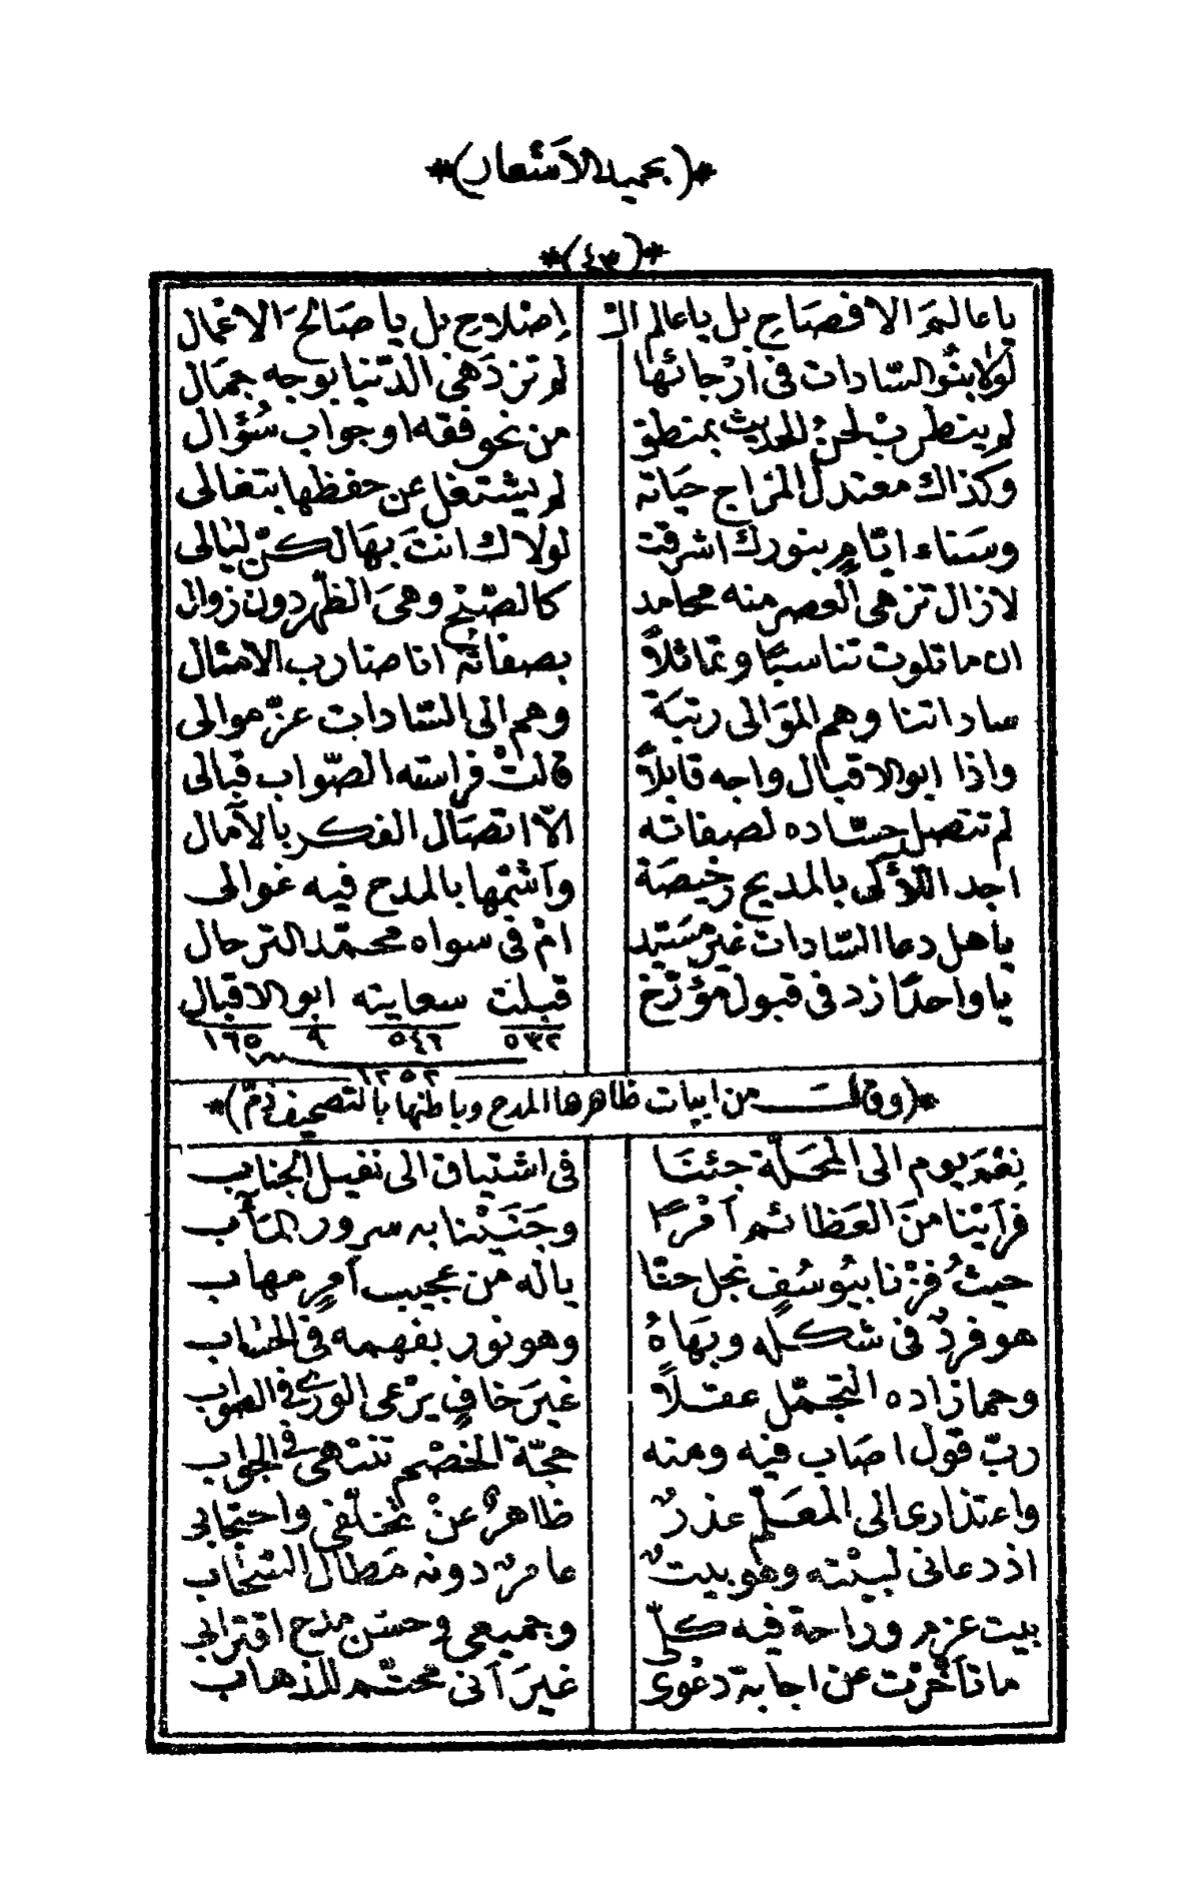 *(بحميد الاشعار)*
*(٤٣)*
يا عالمَ الافصَاحِ بل يا عالم الـ اِصْلاحِ بل يا صَالحَ الاعمال
لولا بنُو السّادات فى أرْجائها لم تزدَهى الدّنيا بوجه جمَال
لم ينطرب لحنُ الحديث بمنطق من نحو فقه او جواب سُؤال
وكذاك معتدل المزاج حيَاته لم يشتغل عن حفظها بتغالى
وسَناء ايّامٍ بنورك اشرقت لولاك انتَ بهَا لكنّ ليَالى
لا زال تزهى العصر منه محامد كالصّبْح وهىَ الظّهر دون زوال
ان ما تلوت تناسبًا وتماثلاً بصفاته انا ضارب الامثال
ساداتنا وهم الموَالى رتبَة وهم الى السّادات عزّ موالى
واذا ابو الاقبال واجه قابلاً قالتْ فراسته الصّواب قبالى
لم تتصل حسّاده لصفاته الّا اتصَال الفكر بالآمال
اجد اللآلى بالمديح رخيصَة وآشمّها بالمدح فيه غوالى
يا هل دعا السّادات غير مسَيّد امْ فى سواه محمّد الترحال
يا واحدًا زد فى قبول مؤرّخ قبلت سعايته ابو الاقبال
٥٣٢ ٥٤٦ ٩ ١٦٥
١٢٥٢
*(وقال من ابيات ظاهرها المدح وباطنها بالتصحيف ذمّ)*
نِعْمَ يوم الى المحَلّة جئنَا فى اشتياق الى نفيل الجناب
فرَأيْنا منَ العَظائم آمْرًا وجَنَيْنا به سرور المآب
حيثُ فزْنا بيُوسُفٍ نجل حنّا ياله من عجيب آمرٍ مهاب
هو فردٌ فى شكله وبهَاهُ وهو نور بفهمه فى الحسَاب
وحمازاده التجمّل عقلاً غيرَ خافٍ يرْعى الورى فى الصواب
ربّ قول اصَاب فيه ومنه حجّة الخصْم تنتهى فى الجواب
واعتذارى الى المعَلّم عذرٌ ظاهرٌ عنْ تخلّفى واحتجابى
اذ دعانى لبيْته وهو بيتٌ عامرٌ دونه مَطال السّحَاب
بيت عزم وراحة فيه كلّى وجميعى وحسن مدح اقترابى
ما تأخّرْت عن اجابة دعْوى غيرَ آنى محتّم للذهاب